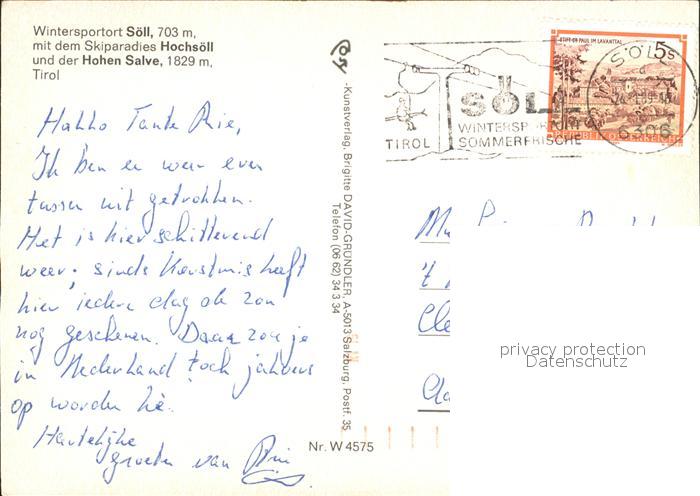 Wintersportort Söll, 703 m,
mit dem Skiparadies Hochsöll
und der Hohen Salve, 1829 m,
Tirol
Hallo Tante Rie,
Ik ben er weer even
tussen uit getrokken.
Het is hier schitterend
weer, sinds Kerstmis heeft
hier iedere dag de zon
nog geschenen. Daar zou je
in Nederland toch jaloers
op worden hè.
Hartelijke
groeten van
-Kunstverlag, Brigitte DAVID-GRÜNDLER, A-5013 Salzburg, Postf. 35
Telefon (06 62) 34 3 34
Nr. W 4575
STIFT ST. PAUL IM LAVANTTAL
5s
REPUBLIK ÖSTERREICH
TIROL
SÖLL
WINTERSPORT
SOMMERFRISCHE
6306
't
privacy protection
Datenschutz